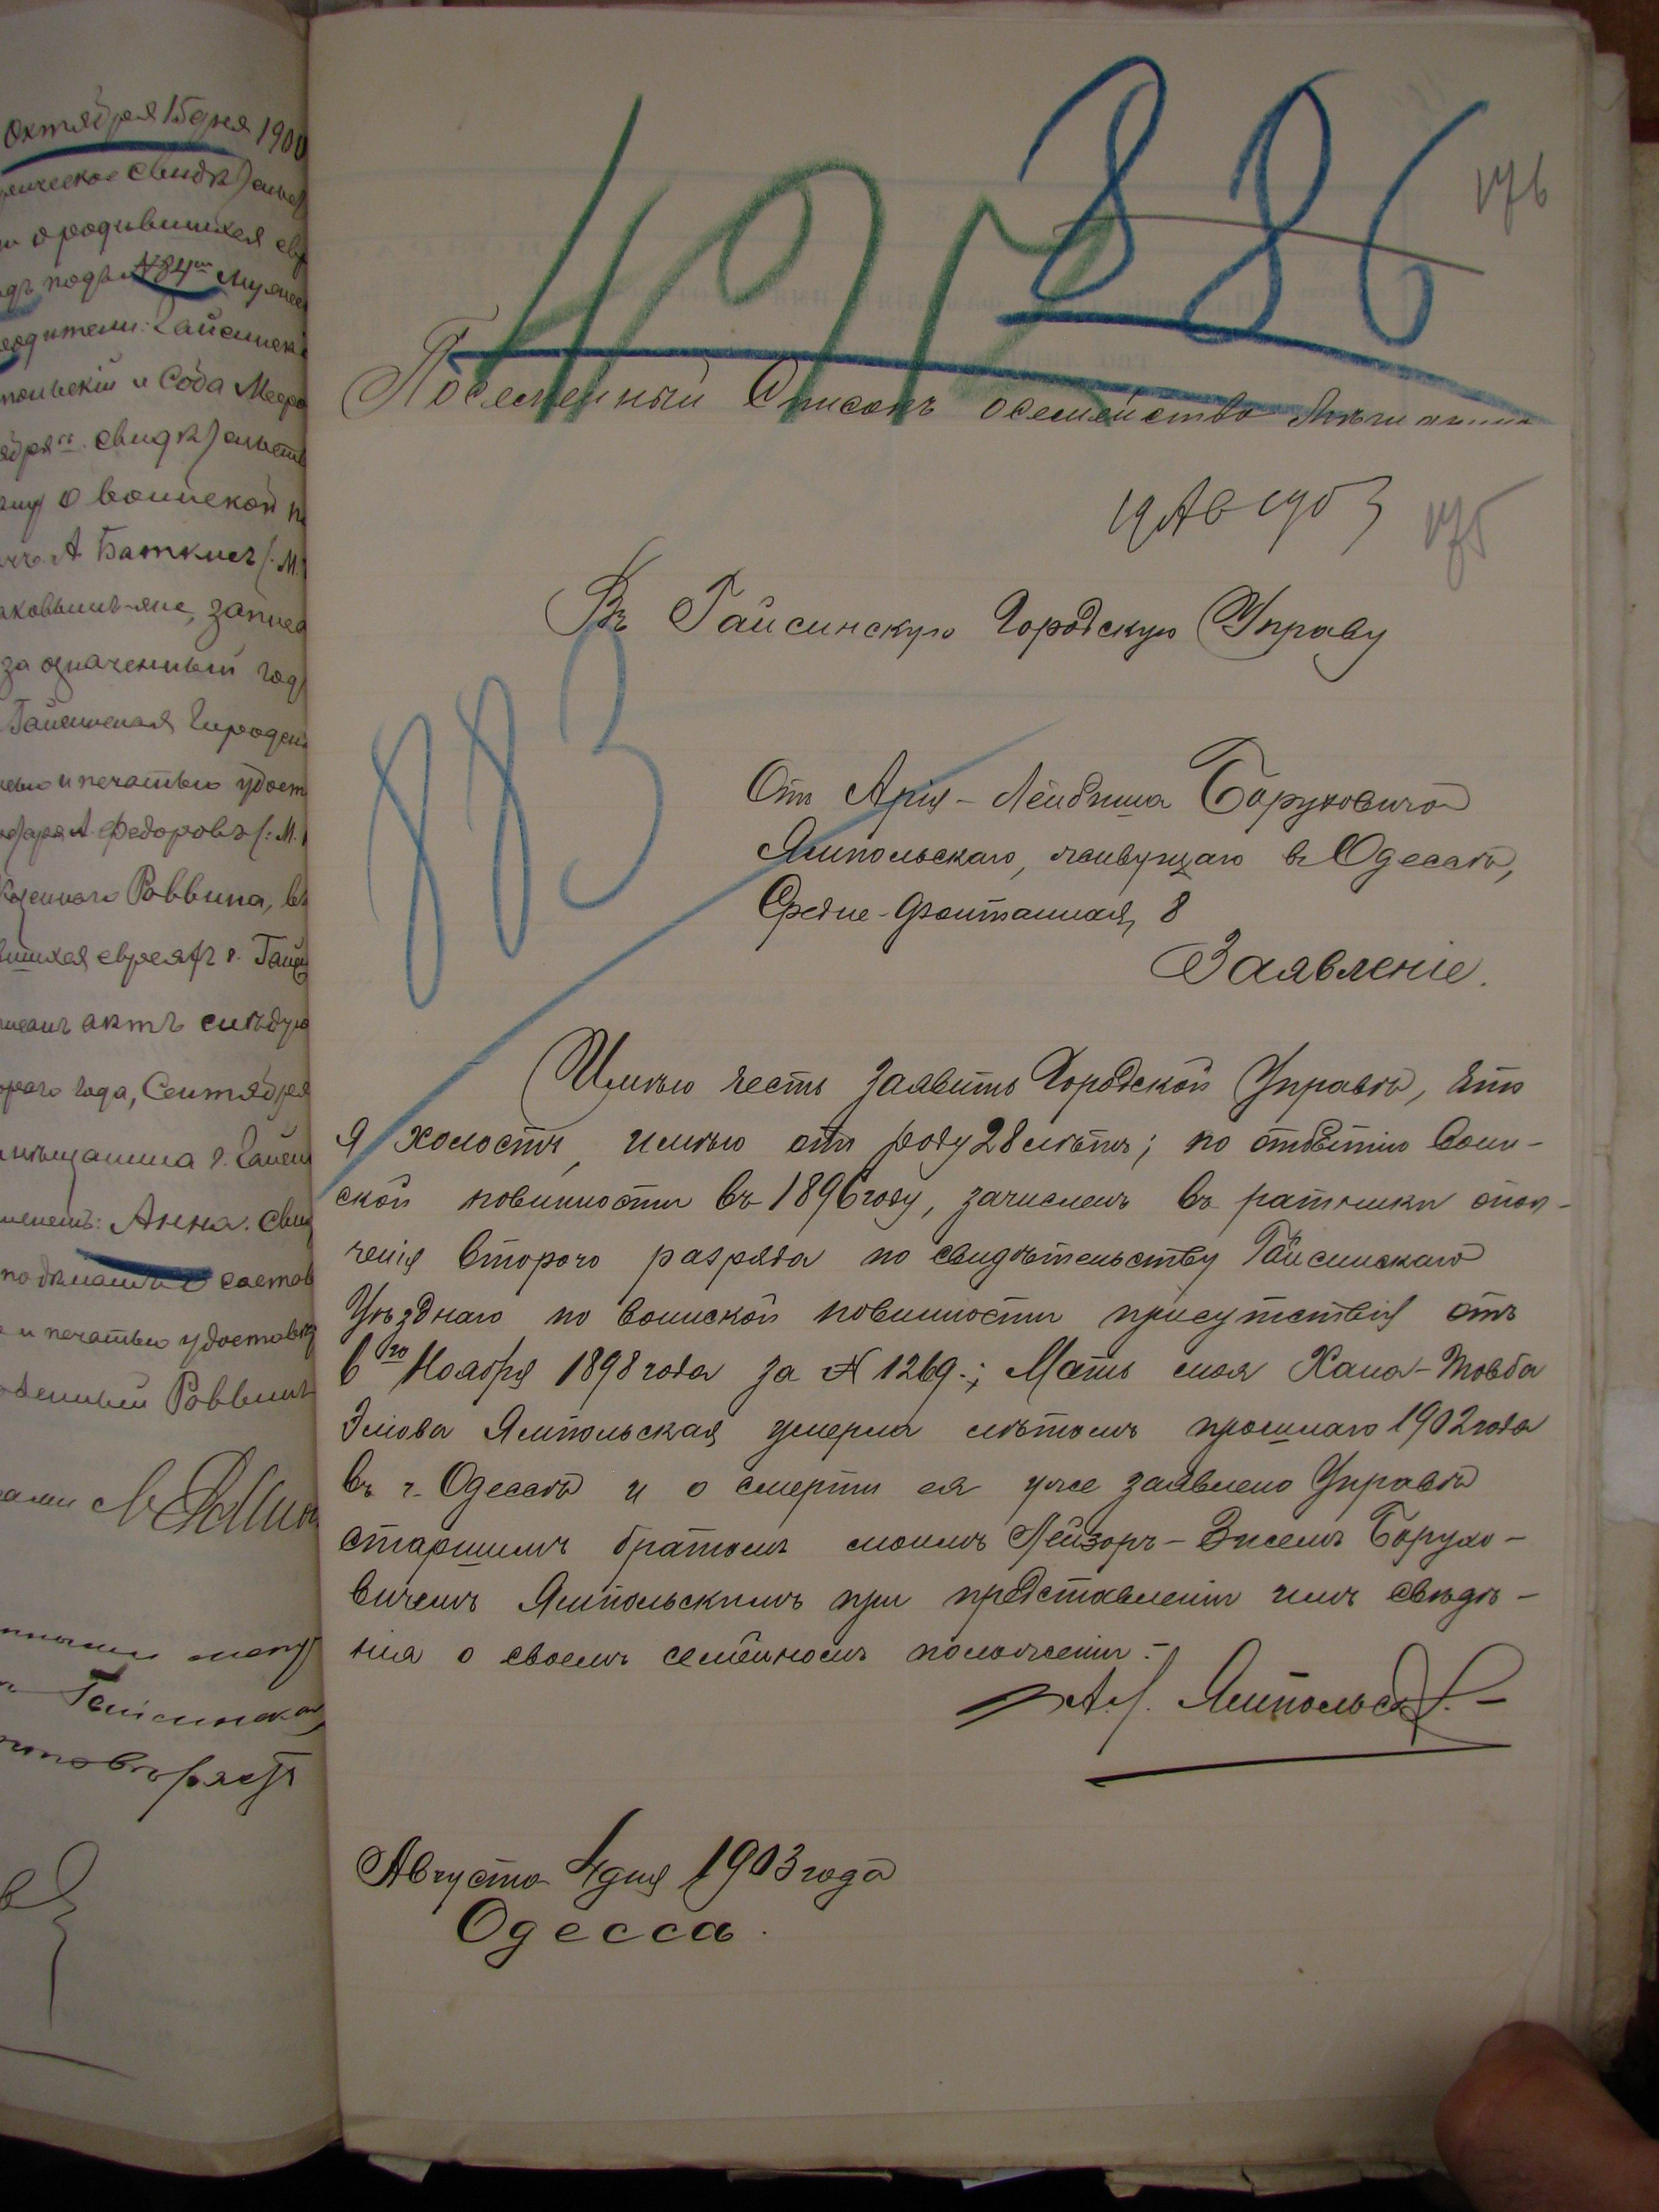 Октября 15 дня 1900
о родившихся
родители: Гайсинск
и Соба
свидѣтельст
о воинской
А. Баткисъ (: М.
за означенный год
Гайсинская Городск
и печатью удост
А. Федоровъ (: М.
Казеннаго Раввина, въ
евреяхъ г. Гайс
актъ слѣдую
года, Сентября
мѣщанина г. Гайс
Анна. Свид
и печатью удостовѣ
Раввинъ
Гайсинска
492 886
176
Посемейный Списокъ о семейство Мѣщанина
19 Ав 1903
175
Въ Гайсинскую Городскую Управу
883
Отъ Арія-Лейбыша Боруховича
Ямпольскаго, живущаго въ Одессѣ,
Средне-Фонтанная, 8
Заявленіе.
Имѣю честь заявить Городской Управѣ, что
я холостъ, имѣю отъ роду 28 лѣтъ; по отбытію воин-
ской повинности въ 1896 году, зачисленъ въ ратники опол-
ченія второго разряда по свидѣтельству Гайсинскаго
Уѣзднаго по воинской повинности присутствія отъ
6го Ноября 1898 года за № 1269.; Мать моя Хана-Товба
Эліова Ямпольская умерла лѣтомъ прошлаго 1902 года
въ г. Одессѣ и о смерти ея уже заявлено Управѣ
старшимъ братомъ моимъ Лейзоръ-Зиселъ Борухо-
вичемъ Ямпольскимъ при представленіи имъ свѣдѣ-
нія о своемъ семейномъ положеніи.-
А. Л. Ямпольскій.-
Августа 4 дня 1903 года
Одесса.